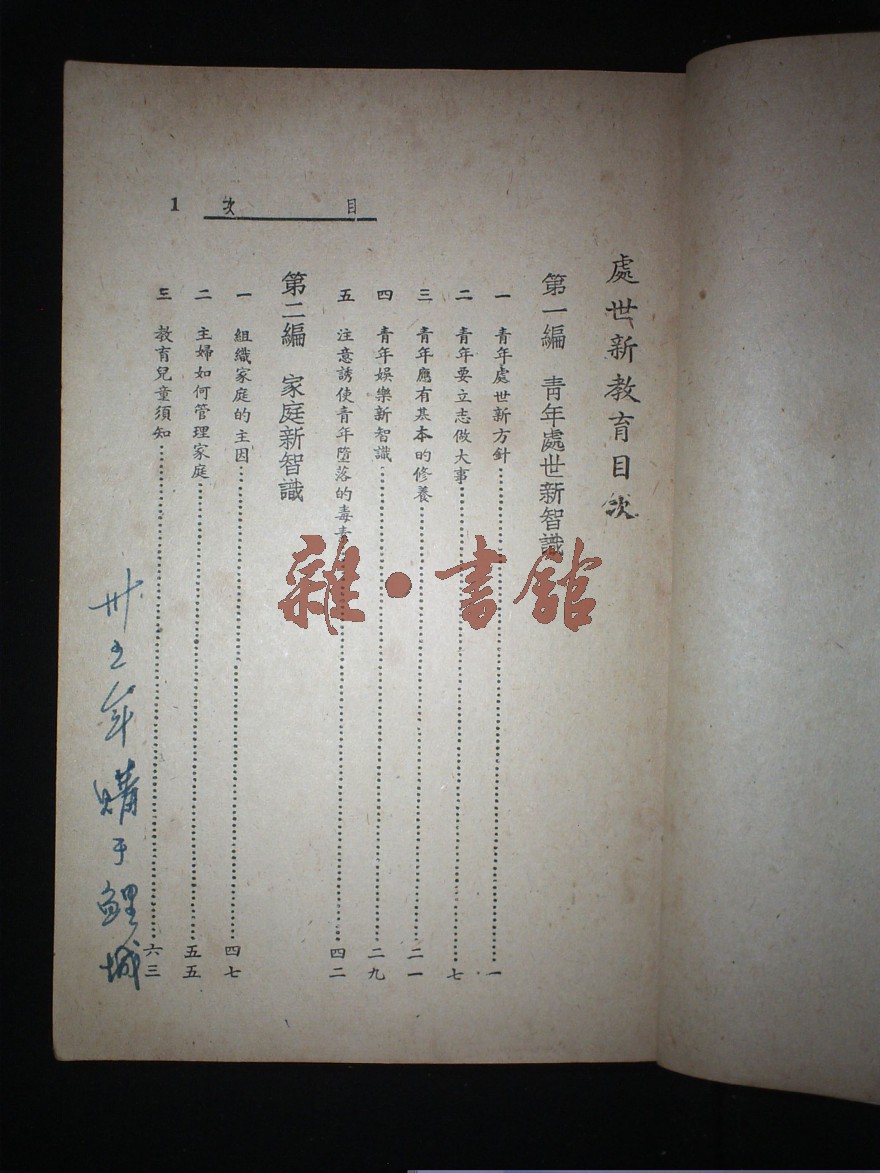 處世新教育目次
第一編 青年處世新智識
一 青年處世新方針 一
二 青年要立志做大事 七
三 青年應有基本的修養 二一
四 青年娛樂新智識 二九
五 注意誘使青年墮落的毒 四二
第二編 家庭新智識
一 組織家庭的主因 四七
二 主婦如何管理家庭 五五
三 教育兒童須知 六三
目次 1
卅五年購于鯉城
雜·書館